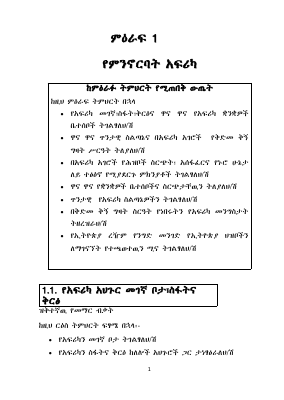 ምዕራፍ 1
የምንኖርባት አፍሪካ
ከምዕራፉ ትምህርት የሚጠበቅ ውጤት
ከዚህ ምዕራፍ ትምህርት በኋላ
• የአፍሪካ መገኛ፣ስፋት፣ቅርፅና ዋና ዋና የአፍሪካ ቋንቋዎች
ቤተሰቦች ትገልፃለህ/ሽ
• ዋና ዋና ጥንታዊ ስልጣኔና በአፍሪካ አገሮች የቅድመ ቅኝ
ግዛት ሥርዓት ትለያለህ/ሽ
• በአፍሪካ አገሮች የሕዝቦች ስርጭት፣ አሰፋፈርና የኑሮ ሁኔታ
ላይ ተፅዕኖ የሚያደርጉ ምክንያቶች ትገልፃለህ/ሽ
• ዋና ዋና የቋንቋዎች ቤተሰቦችና ስርጭታቸዉን ትለያለህ/ሽ
• ጥንታዊ የአፍሪካ ስልጣኔዎችን ትገልፃለህ/ሽ
• በቅድመ ቅኝ ግዛት ስርዓት የነበሩትን የአፍሪካ መንግስታት
ትዘረዝራለህ/ሽ
• የኢትዮጵያ ረዥም የንግድ መንገድ የኢትዮጵያ ህዝቦችን
ለማገናኘት የተጫወተዉን ሚና ትገልፃለህ/ሽ
1.1. የአፍሪካ አህጉር መገኛ ቦታ፣ስፋትና
ቅርፅ
ዝቅተኛዉ የመማር ብቃት
ከዚህ ርዕስ ትምህርት ፍፃሜ በኋላ፡-
• የአፍሪካን መገኛ ቦታ ትገልፃለህ/ሽ
• የአፍሪካን ስፋትና ቅርፅ ከሌሎች አህጉሮች ጋር ታነፃፅራለህ/ሽ
1